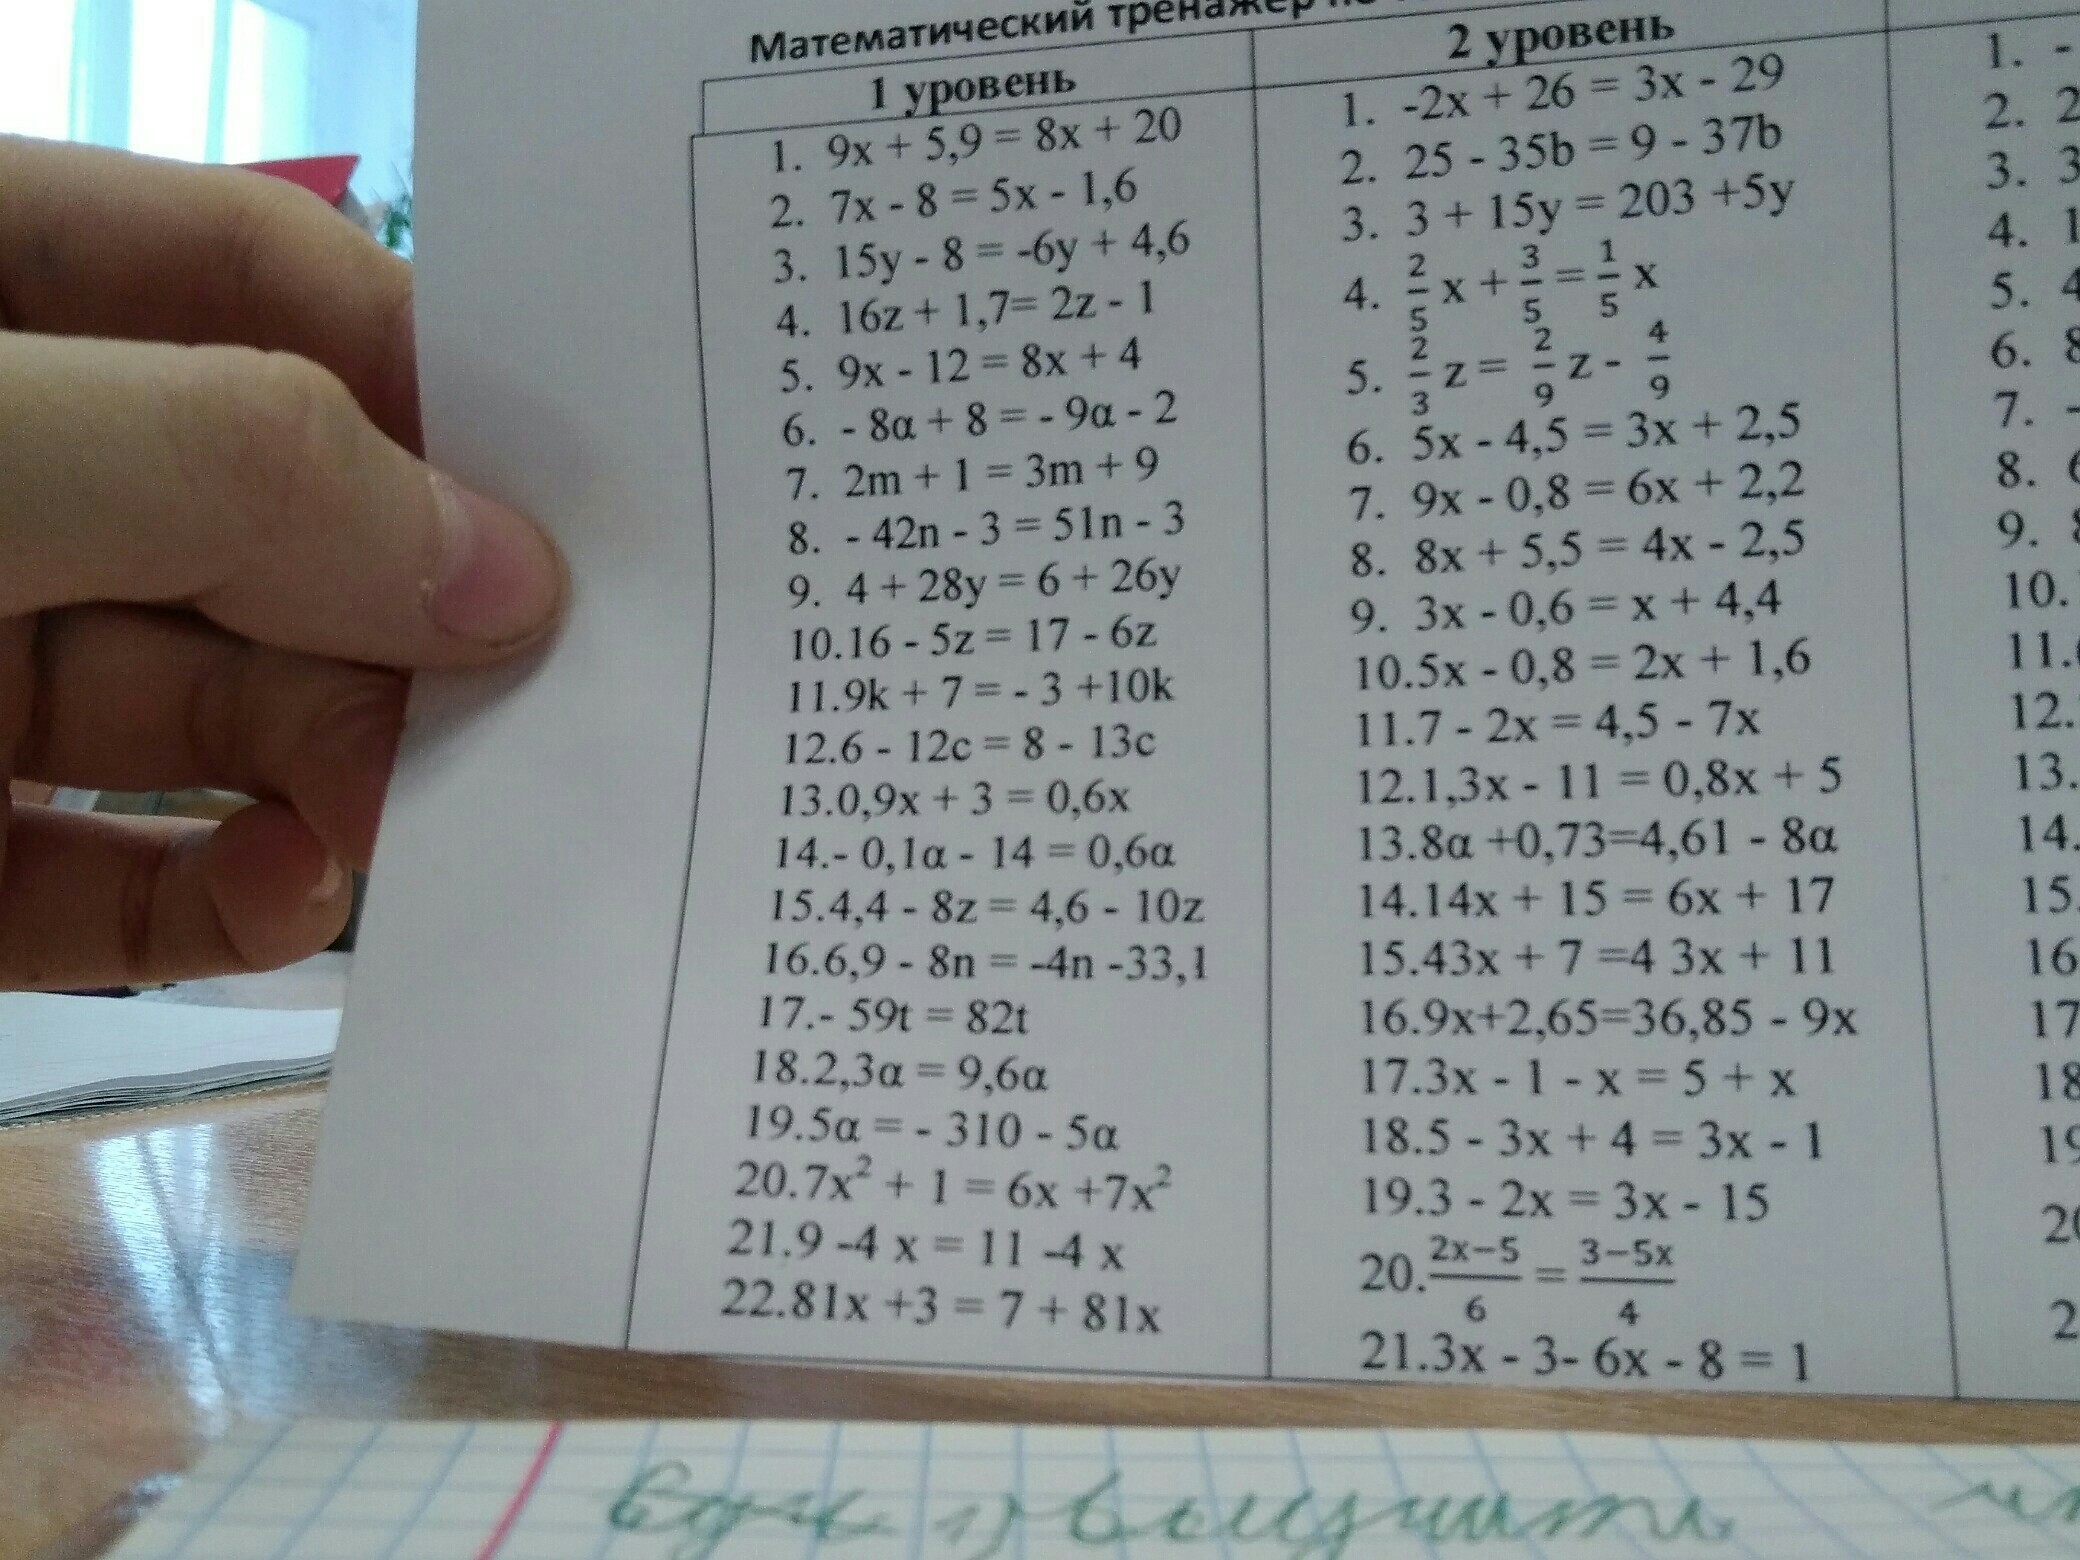 Математический тренажер
1 уровень
1. 9x + 5,9 = 8x + 20
2. 7x - 8 = 5x - 1,6
3. 15y - 8 = -6y + 4,6
4. 16z + 1,7= 2z - 1
5. 9x - 12 = 8x + 4
6. - 8α + 8 = - 9α - 2
7. 2m + 1 = 3m + 9
8. - 42n - 3 = 51n - 3
9. 4 + 28y = 6 + 26y
10.16 - 5z = 17 - 6z
11.9k + 7 = - 3 +10k
12.6 - 12c = 8 - 13c
13.0,9x + 3 = 0,6x
14.- 0,1α - 14 = 0,6α
15.4,4 - 8z = 4,6 - 10z
16.6,9 - 8n = -4n -33,1
17.- 59t = 82t
18.2,3α = 9,6α
19.5α = - 310 - 5α
20.7x² + 1 = 6x +7x²
21.9 -4 x = 11 -4 x
22.81x +3 = 7 + 81x
2 уровень
1. -2x + 26 = 3x - 29
2. 25 - 35b = 9 - 37b
3. 3 + 15y = 203 +5y
4. 2/5 x + 3/5 = 1/5 x
5. 2/3 z = 2/9 z - 4/9
6. 5x - 4,5 = 3x + 2,5
7. 9x - 0,8 = 6x + 2,2
8. 8x + 5,5 = 4x - 2,5
9. 3x - 0,6 = x + 4,4
10.5x - 0,8 = 2x + 1,6
11.7 - 2x = 4,5 - 7x
12.1,3x - 11 = 0,8x + 5
13.8α +0,73=4,61 - 8α
14.14x + 15 = 6x + 17
15.43x + 7 =4 3x + 11
16.9x+2,65=36,85 - 9x
17.3x - 1 - x = 5 + x
18.5 - 3x + 4 = 3x - 1
19.3 - 2x = 3x - 15
20. 2x−5/6 = 3−5x/4
21.3x - 3- 6x - 8 = 1
1. -
2. 2
3. 3
4. 1
5. 4
6. 8
7. -
8. 6
9. 8
10.
11.
12.
13.
14.
15.
16
17
18
19